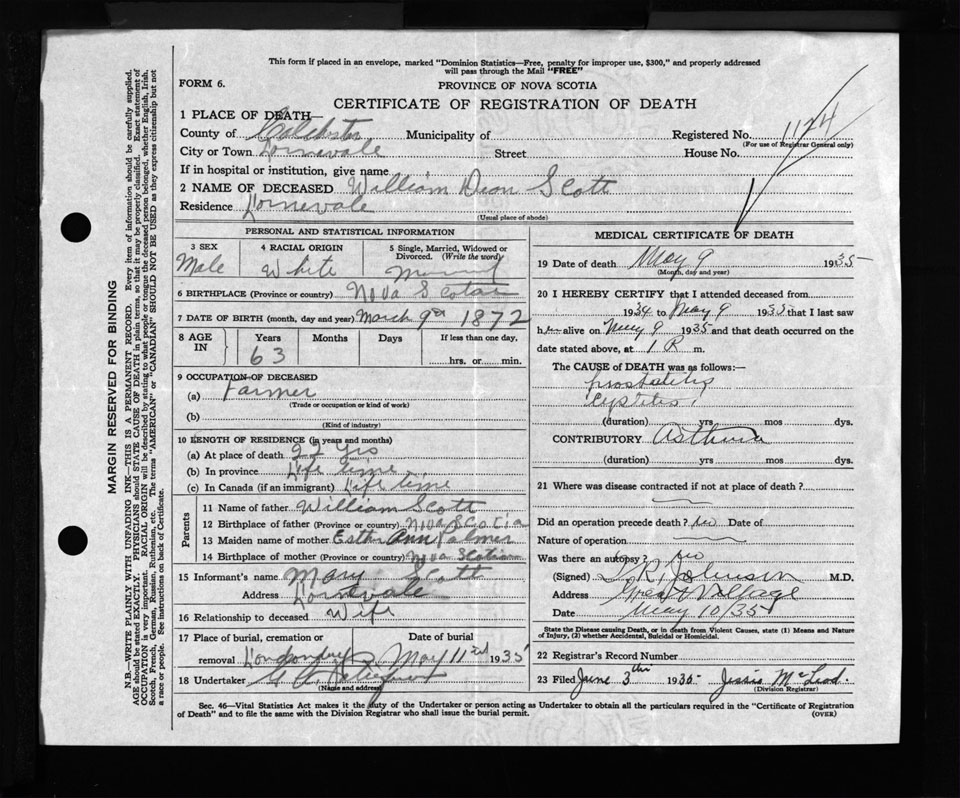 This form if placed in an envelope, marked "Dominion Statistics—Free, penalty for improper use, $300," and properly addressed
will pass through the Mail "FREE"
FORM 6.
PROVINCE OF NOVA SCOTIA
CERTIFICATE OF REGISTRATION OF DEATH
1 PLACE OF DEATH—
County of Colchester Municipality of Registered No. 1124
(For use of Registrar General only)
City or Town Lornevale Street House No.
If in hospital or institution, give name
2 NAME OF DECEASED William Dean Scott
Residence Lornevale
(Usual place of abode)
PERSONAL AND STATISTICAL INFORMATION
3 SEX 4 RACIAL ORIGIN 5 Single, Married, Widowed or
Divorced. (Write the word)
Male White Married
6 BIRTHPLACE (Province or country) Nova Scotia
7 DATE OF BIRTH (month, day and year) March 9th 1872
8 AGE IN Years Months Days If less than one day.
63 hrs. or min.
9 OCCUPATION OF DECEASED
(a) Farmer
(Trade or occupation or kind of work)
(b)
(Kind of industry)
10 LENGTH OF RESIDENCE (in years and months)
(a) At place of death 22 yrs
(b) In province Life time
(c) In Canada (if an immigrant) Life time
Parents
11 Name of father William Scott
12 Birthplace of father (Province or country) Nova Scotia
13 Maiden name of mother Esther Ann Palmer
14 Birthplace of mother (Province or country) Nova Scotia
15 Informant's name Mary Scott
Address Lornevale
16 Relationship to deceased Wife
17 Place of burial, cremation or Date of burial
removal Londonderry May 11 1935
18 Undertaker
(Name and address)
MEDICAL CERTIFICATE OF DEATH
19 Date of death May 9 1935
(Month, day and year)
20 I HEREBY CERTIFY that I attended deceased from
1934 to May 9 1935 that I last saw
him alive on May 9 1935 and that death occurred on
the date stated above, at 1 P m.
The CAUSE of DEATH was as follows:—
prostatitis
Cystitis
(duration) yrs mos. dys.
CONTRIBUTORY Asthma
(duration) yrs mos. dys.
21 Where was disease contracted if not at place of death?
Did an operation precede death? no Date of
Nature of operation
Was there an autopsy? no
(Signed) T.R. Johnson M.D.
Address Great Village
Date May 10/35
State the Disease causing Death, or in death from Violent Causes, state (1) Means and Nature
of Injury, (2) whether Accidental, Suicidal or Homicidal.
22 Registrar's Record Number
23 Filed June 3rd 1935 Jessie McLeod.
(Division Registrar)
Sec. 46—Vital Statistics Act makes it the duty of the Undertaker or person acting as Undertaker to obtain all the particulars required in the "Certificate of Registration
of Death" and to file the same with the Division Registrar who shall issue the burial permit.
(OVER)
MARGIN RESERVED FOR BINDING
N.B.—WRITE PLAINLY WITH UNFADING INK—THIS IS A PERMANENT RECORD. Every item of information should be carefully supplied.
AGE should be stated EXACTLY. PHYSICIANS should STATE CAUSE OF DEATH in plain terms, so that it may be properly classified. Exact statement of
OCCUPATION is very important. RACIAL ORIGIN will be described by stating to what people or tongue the deceased person belonged, whether English, Irish,
Scotch, French, German, Russian, Ruthenian, etc. The terms "AMERICAN" or "CANADIAN" SHOULD NOT BE USED as they express citizenship but not
a race or people. See instructions on back of Certificate.